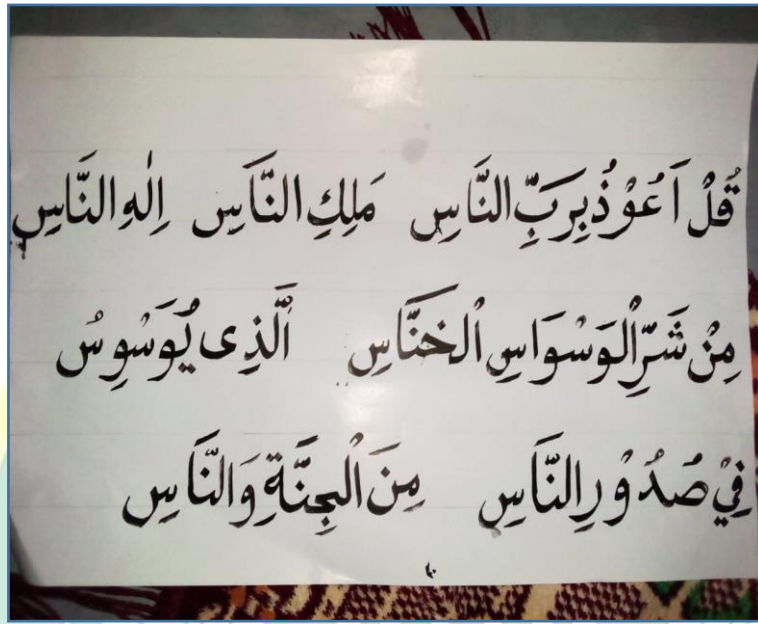 قُلْ اَعُوْذُ بِرَبِّ النَّاسِ مَلِكِ النَّاسِ اِلٰهِ النَّاسِ
مِنْ شَرِّ الْوَسْوَاسِ الْخَنَّاسِ الَّذِى يُوَسْوِسُ
فِيْ صُدُوْرِ النَّاسِ مِنَ الْجِنَّةِ وَالنَّاسِ